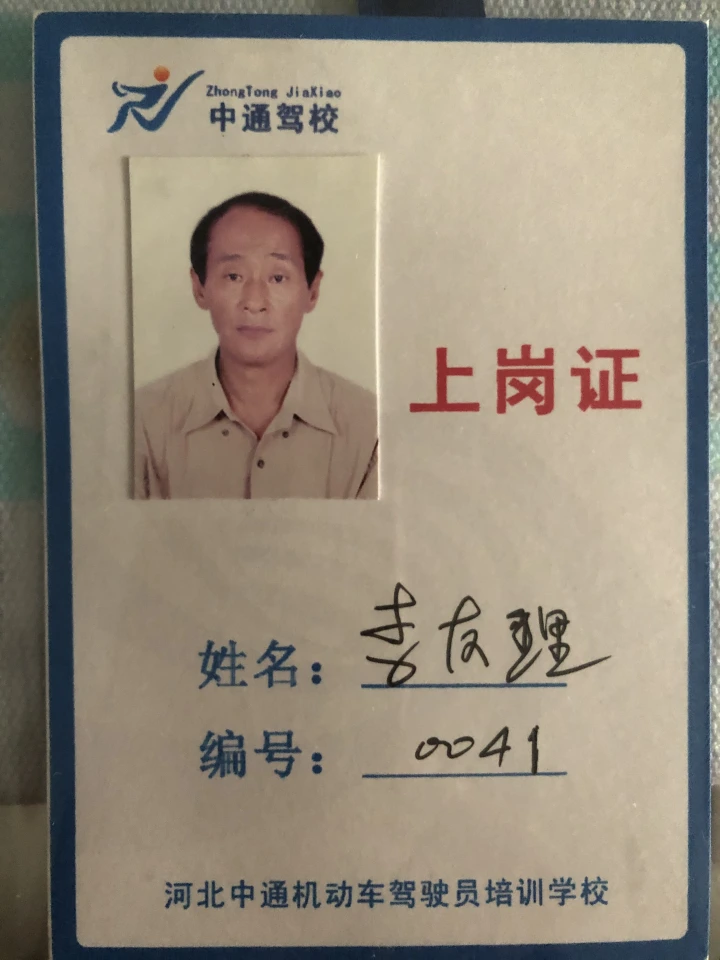 ZhongTong JiaXiao
中通驾校
上岗证
姓名：李友理
编号：0041
河北中通机动车驾驶员培训学校